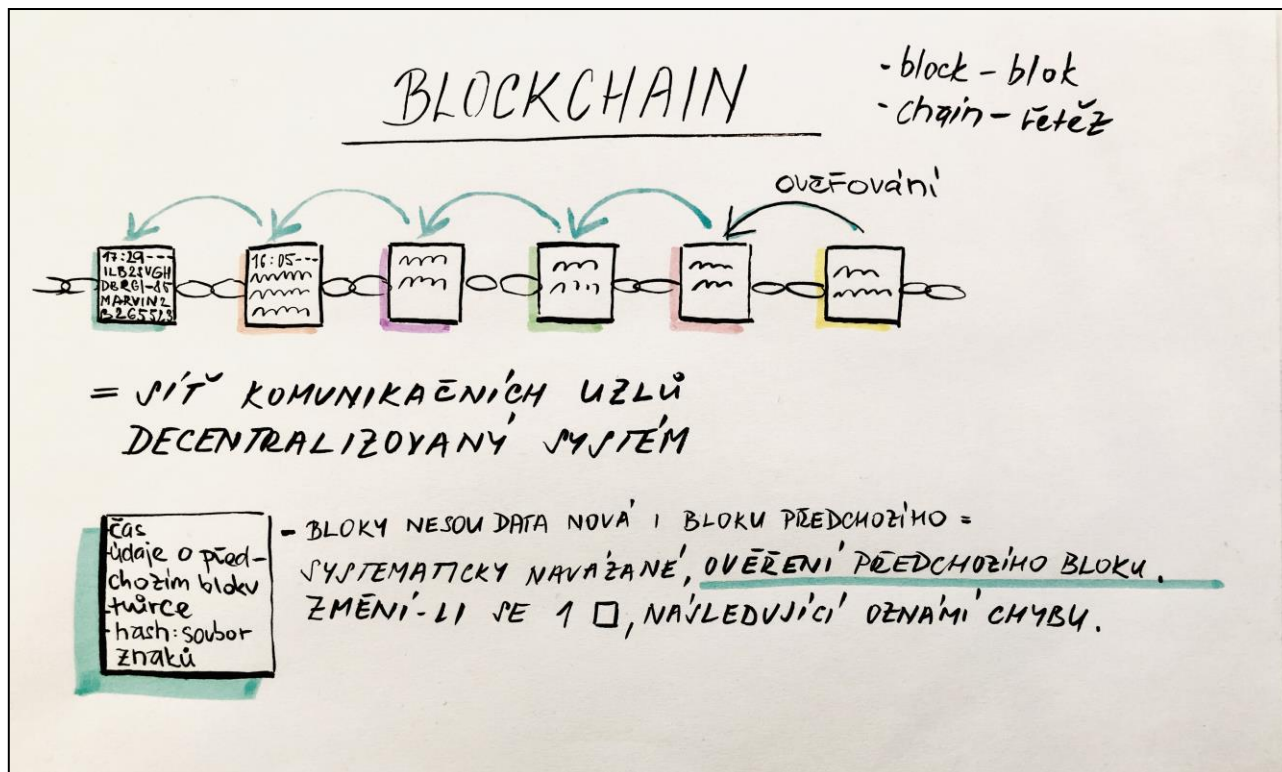 BLOCKCHAIN
- block - blok
- chain - řetěz
ověřování
17:29---
1LB28VGH
MARVIN2
16:05---
= SÍŤ KOMUNIKAČNÍCH UZLŮ
DECENTRALIZOVANÝ SYSTÉM
- čas
- údaje o před-
chozím bloku
- tvůrce
- hash: soubor
znaků
- BLOKY NESOU DATA NOVÁ I BLOKU PŘEDCHOZÍHO =
SYSTEMATICKY NAVÁZANÉ, OVĚŘENÍ PŘEDCHOZÍHO BLOKU.
ZMĚNÍ-LI SE 1 □, NÁSLEDUJÍCÍ OZNÁMÍ CHYBU.